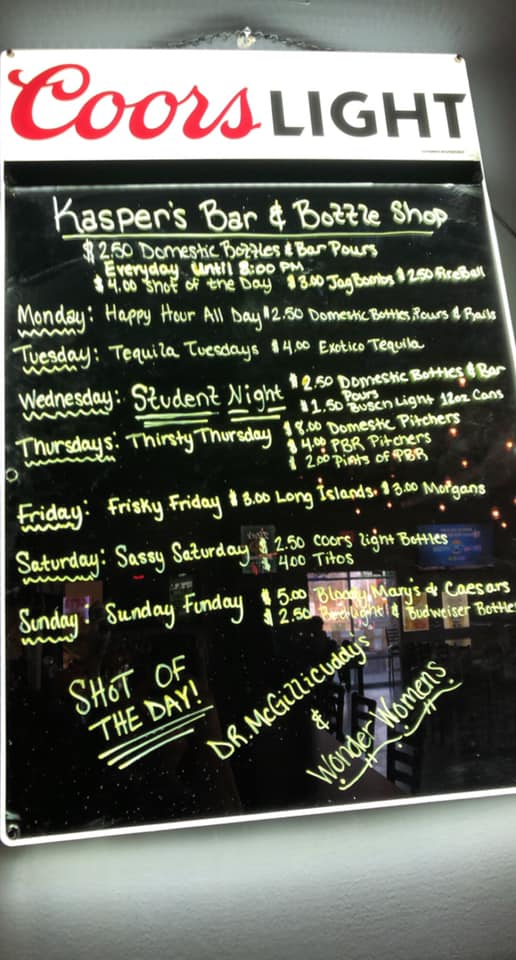 Coors LIGHT
Kasper's Bar & Bottle Shop
$2.50 Domestic Bottles & Bar Pours
Everyday Until 8:00 PM
$4.00 Shot of the Day $3.00 Jag Bombs $2.50 FireBall
Monday: Happy Hour All Day $2.50 Domestic Bottles, Pours & Rails
Tuesday: Tequila Tuesdays $4.00 Exotico Tequila
Wednesday: Student Night $2.50 Domestic Bottles & Bar Pours
$1.50 Busch Light 12oz Cans
Thursdays: Thirsty Thursday $8.00 Domestic Pitchers
$4.00 PBR Pitchers
$2.00 Pints of PBR
Friday: Frisky Friday $3.00 Long Islands. $3.00 Morgans
Saturday: Sassy Saturday $2.50 Coors Light Bottles
$4.00 Titos
Sunday: Sunday Funday $5.00 Bloody Mary's & Caesars
$2.50 Bud Light & Budweiser Bottles
SHOT OF
THE DAY!
DR. McGillicuddys
&
Wonder Womens